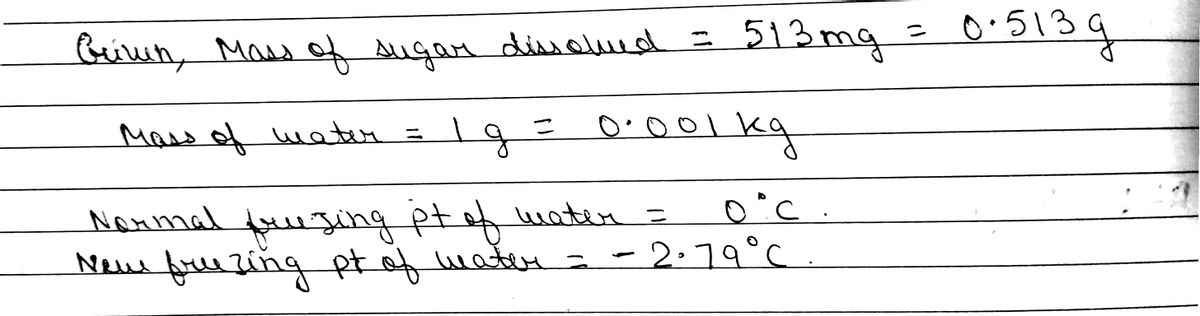 Given, Mass of sugar dissolved = 513 mg = 0.513 g
Mass of water = 1 g = 0.001 kg
Normal freezing pt of water = 0°C.
New freezing pt of water = -2.79°C.